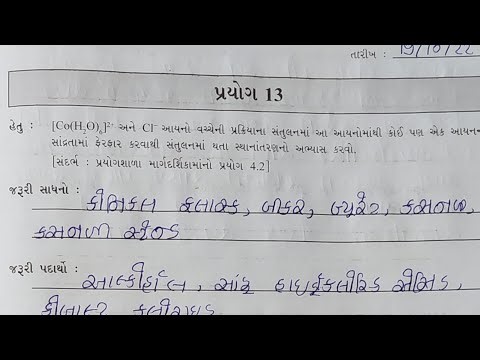 તારીખ : 19/10/22
પ્રયોગ 13
હેતુ : [Co(H₂O)₆]²⁺ અને Cl⁻ આયનો વચ્ચેની પ્રક્રિયાના સંતુલનમાં આ આયનોમાંથી કોઈ પણ એક આયનની
સાંદ્રતામાં ફેરફાર કરવાથી સંતુલનમાં થતા સ્થાનાંતરણનો અભ્યાસ કરવો.
[સંદર્ભ : પ્રયોગશાળા માર્ગદર્શિકામાંનો પ્રયોગ 4.2]
જરૂરી સાધનો : કોનિકલ ફ્લાસ્ક, બીકર, બ્યુરેટ, કસનળી,
કસનળી સ્ટેન્ડ
જરૂરી પદાર્થો : આલ્કોહોલ, સાંદ્ર હાઇડ્રોક્લોરિક એસિડ,
કોબાલ્ટ ક્લોરાઇડ